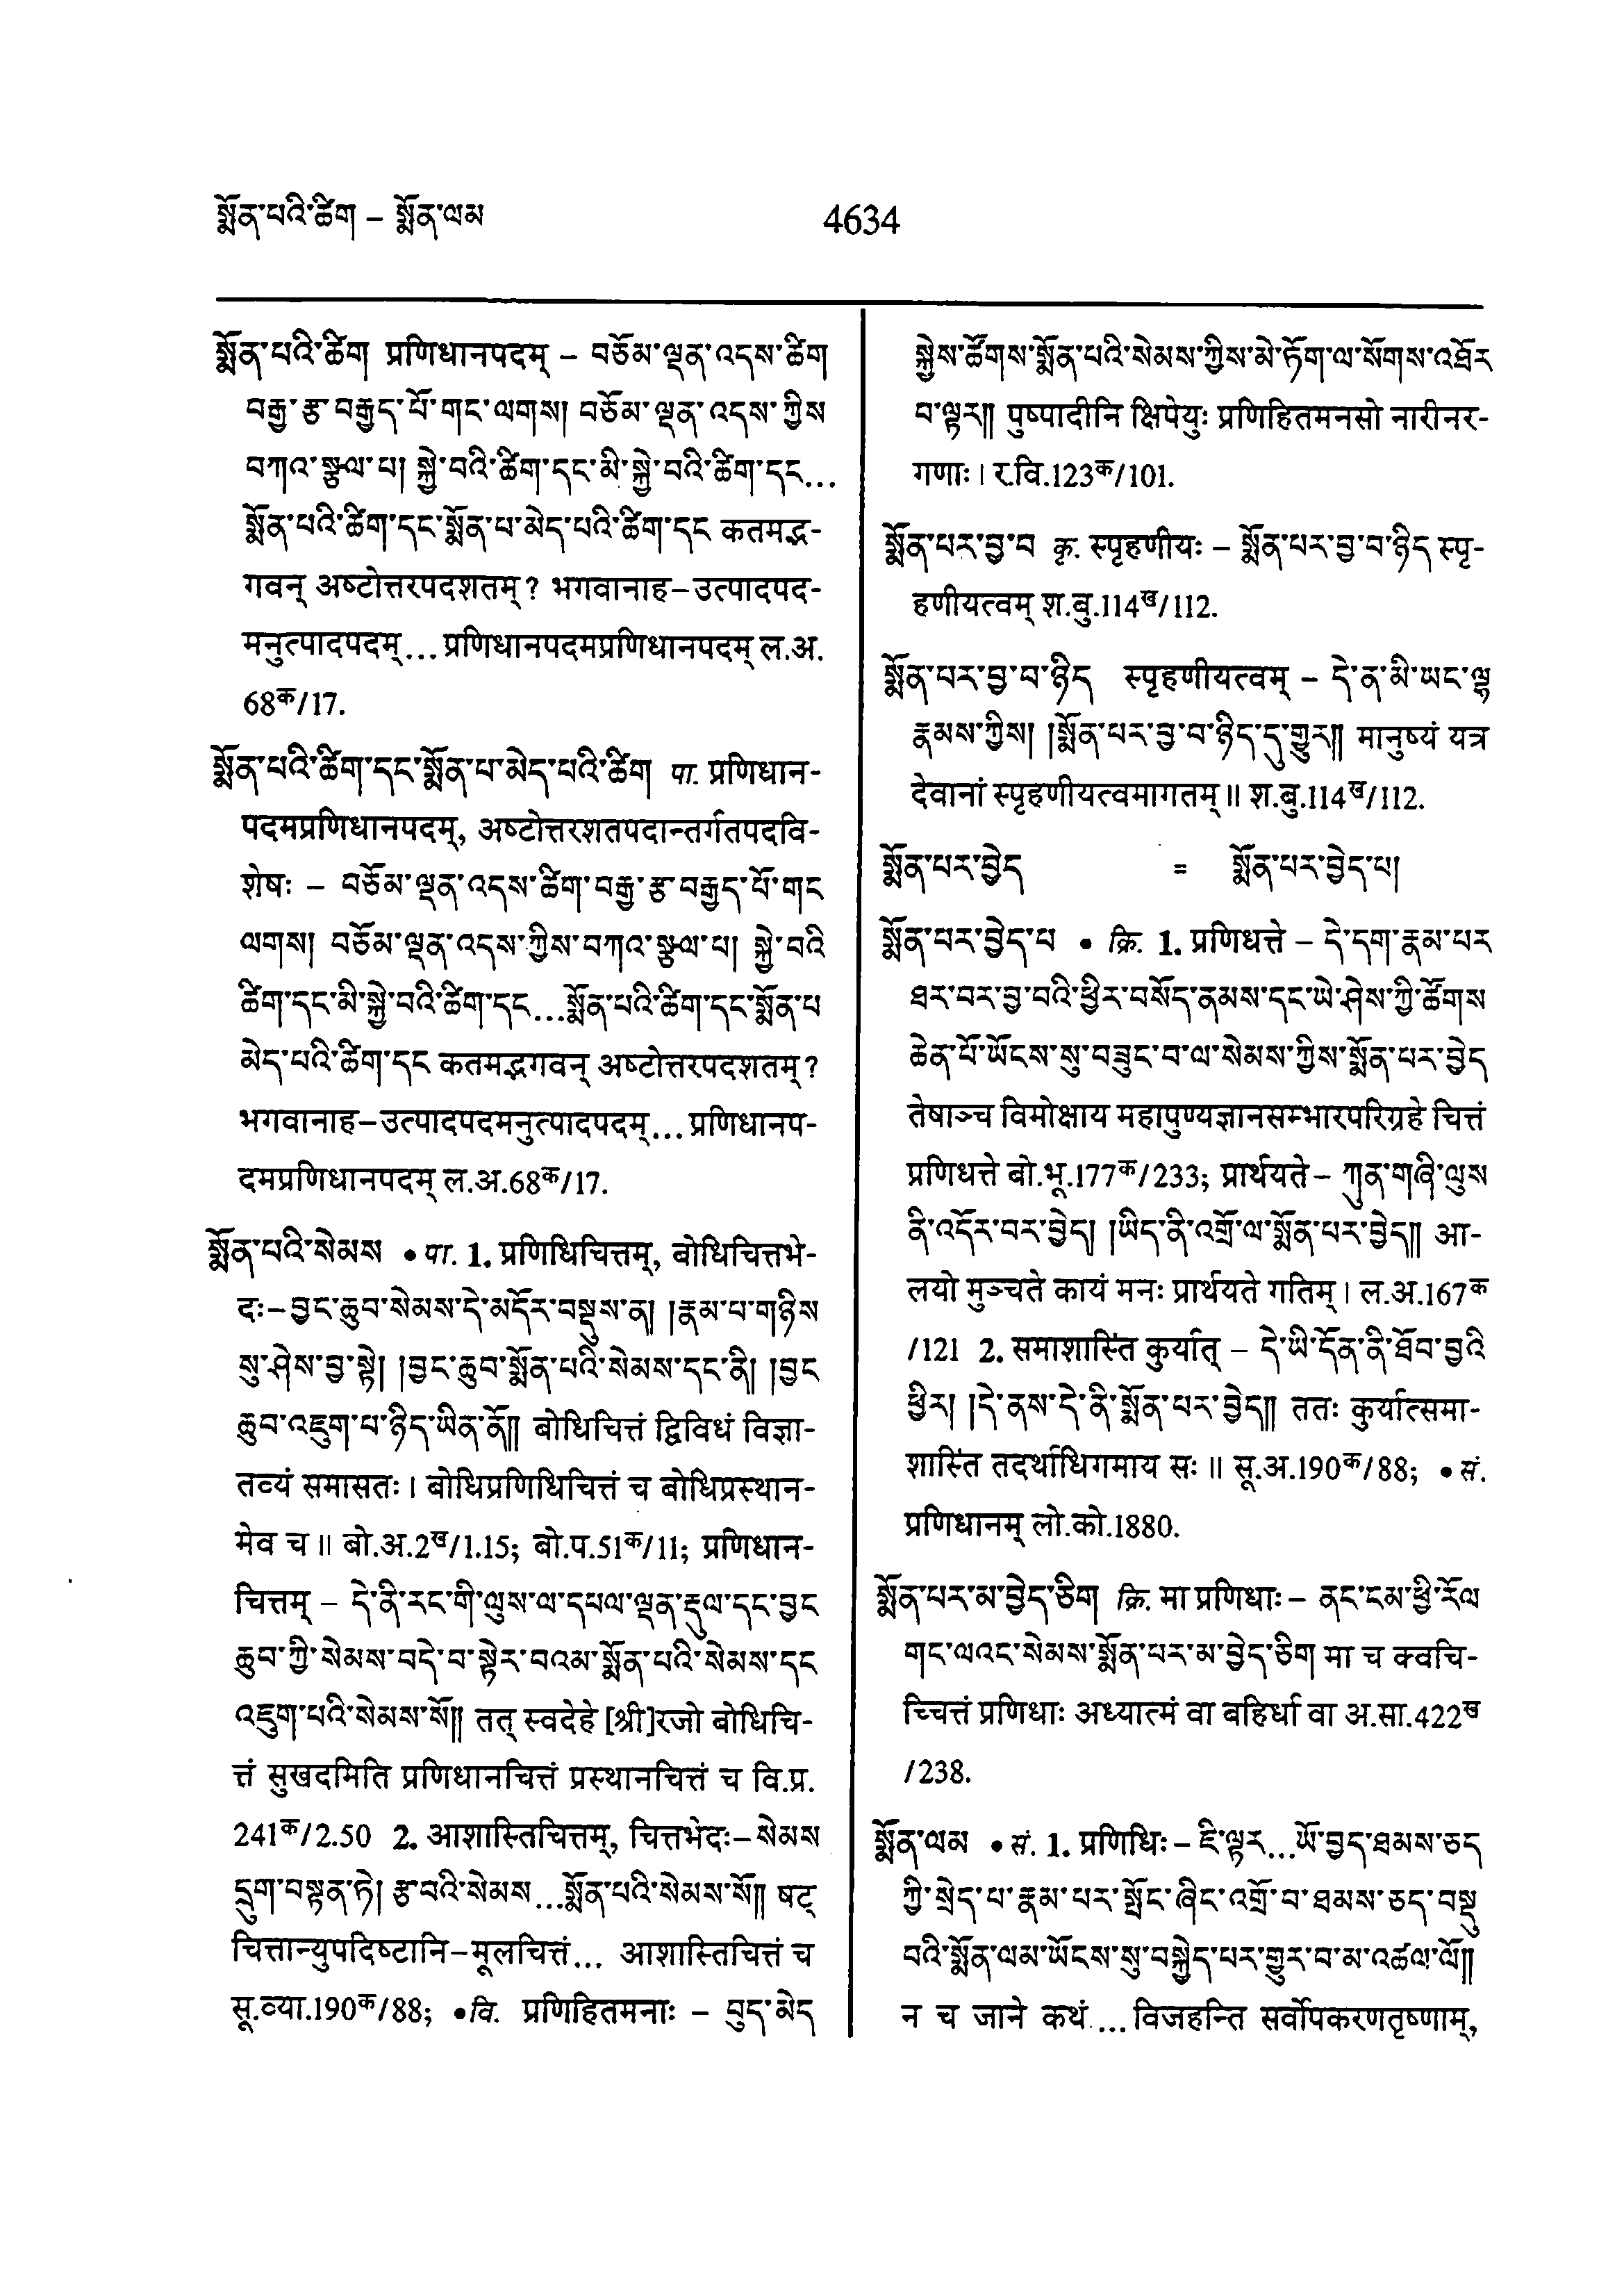 སྨོན་པའི་ཚིག – སྨོན་ལམ
4634
སྨོན་པའི་ཚིག प्रणिधानपदम् – བཅོམ་ལྡན་འདས་ཚིག
བརྒྱ་རྩ་བརྒྱད་པོ་གང་ལགས། བཅོམ་ལྡན་འདས་ཀྱིས
བཀའ་སྩལ་པ། སྐྱེ་བའི་ཚིག་དང་མི་སྐྱེ་བའི་ཚིག་དང...
སྨོན་པའི་ཚིག་དང་སྨོན་པ་མེད་པའི་ཚིག་དང कतमद्भ-
गवन् अष्टोत्तरपदशतम्? भगवानाह–उत्पादपद-
मनुत्पादपदम्... प्रणिधानपदमप्रणिधानपदम् ल.अ.
68क/17.
སྨོན་པའི་ཚིག་དང་སྨོན་པ་མེད་པའི་ཚིག पा. प्रणिधान-
पदमप्रणिधानपदम्, अष्टोत्तरशतपदान्तर्गतपदवि-
शेषः – བཅོམ་ལྡན་འདས་ཚིག་བརྒྱ་རྩ་བརྒྱད་པོ་གང
ལགས། བཅོམ་ལྡན་འདས་ཀྱིས་བཀའ་སྩལ་པ། སྐྱེ་བའི
ཚིག་དང་མི་སྐྱེ་བའི་ཚིག་དང...སྨོན་པའི་ཚིག་དང་སྨོན་པ
མེད་པའི་ཚིག་དང कतमद्भगवन् अष्टोत्तरपदशतम्?
भगवानाह–उत्पादपदमनुत्पादपदम्... प्रणिधानप-
दमप्रणिधानपदम् ल.अ.68क/17.
སྨོན་པའི་སེམས • पा. 1. प्रणिधिचित्तम्, बोधिचित्तभे-
दः– བྱང་ཆུབ་སེམས་དེ་མདོར་བསྡུས་ན། །རྣམ་པ་གཉིས
སུ་ཤེས་བྱ་སྟེ། །བྱང་ཆུབ་སྨོན་པའི་སེམས་དང་ནི། །བྱང
ཆུབ་འཇུག་པ་ཉིད་ཡིན་ནོ།། बोधिचित्तं द्विविधं विज्ञा-
तव्यं समासतः। बोधिप्रणिधिचित्तं च बोधिप्रस्थान-
मेव च॥ बो.अ.2ख/1.15; बो.प.51क/11; प्रणिधान-
चित्तम् – དེ་ནི་རང་གི་ལུས་ལ་དཔལ་ལྡན་རྡུལ་དང་བྱང
ཆུབ་ཀྱི་སེམས་བདེ་བ་སྟེར་བའམ་སྨོན་པའི་སེམས་དང
འཇུག་པའི་སེམས་སོ།། तत् स्वदेहे [श्री]रजो बोधिचि-
त्तं सुखदमिति प्रणिधानचित्तं प्रस्थानचित्तं च वि.प्र.
241क/2.50 2. आशास्तिचित्तम्, चित्तभेदः– སེམས
དྲུག་བསྟན་ཏེ། རྩ་བའི་སེམས...སྨོན་པའི་སེམས་སོ།། षट्
चित्तान्युपदिष्टानि–मूलचित्तं... आशास्तिचित्तं च
सू.व्या.190क/88; •वि. प्रणिहितमनाः – བུད་མེད
སྐྱེས་ཚོགས་སྨོན་པའི་སེམས་ཀྱིས་མེ་ཏོག་ལ་སོགས་འཐོར
བ་ལྟར།། पुष्पादीनि क्षिपेयुः प्रणिहितमनसो नारीनर-
गणाः। र.वि.123क/101.
སྨོན་པར་བྱ་བ कृ. स्पृहणीयः – སྨོན་པར་བྱ་བ་ཉིད स्पृ-
हणीयत्वम् श.बु.114ख/112.
སྨོན་པར་བྱ་བ་ཉིད स्पृहणीयत्वम् – དེ་ན་མི་ཡང་ལྷ
རྣམས་ཀྱིས། །སྨོན་པར་བྱ་བ་ཉིད་དུ་གྱུར།། मानुष्यं यत्र
देवानां स्पृहणीयत्वमागतम्॥ श.बु.114ख/112.
སྨོན་པར་བྱེད = སྨོན་པར་བྱེད་པ།
སྨོན་པར་བྱེད་པ • क्रि. 1. प्रणिधत्ते – དེ་དག་རྣམ་པར
ཐར་བར་བྱ་བའི་ཕྱིར་བསོད་ནམས་དང་ཡེ་ཤེས་ཀྱི་ཚོགས
ཆེན་པོ་ཡོངས་སུ་བཟུང་བ་ལ་སེམས་ཀྱིས་སྨོན་པར་བྱེད
तेषाञ्च विमोक्षाय महापुण्यज्ञानसम्भारपरिग्रहे चित्तं
प्रणिधत्ते बो.भू.177क/233; प्रार्थयते– ཀུན་གཞི་ལུས
ནི་འདོར་བར་བྱེད། །ཡིད་ནི་འགྲོ་ལ་སྨོན་པར་བྱེད།། आ-
लयो मुञ्चते कायं मनः प्रार्थयते गतिम्। ल.अ.167क
/121 2. समाशास्तिं कुर्यात् – དེ་ཡི་དོན་ནི་ཐོབ་བྱའི
ཕྱིར། །དེ་ནས་དེ་ནི་སྨོན་པར་བྱེད།། ततः कुर्यात्समा-
शास्तिं तदर्थाधिगमाय सः॥ सू.अ.190क/88; • सं.
प्रणिधानम् लो.को.1880.
སྨོན་པར་མ་བྱེད་ཅིག क्रि. मा प्रणिधाः – ནང་ངམ་ཕྱི་རོལ
གང་ལའང་སེམས་སྨོན་པར་མ་བྱེད་ཅིག मा च क्वचि-
च्चित्तं प्रणिधाः अध्यात्मं वा बहिर्धा वा अ.सा.422ख
/238.
སྨོན་ལམ • सं. 1. प्रणिधिः – ཇི་ལྟར...ཡོ་བྱད་ཐམས་ཅད
ཀྱི་སྲེད་པ་རྣམ་པར་སྤོང་ཞིང་འགྲོ་བ་ཐམས་ཅད་བསྡུ
བའི་སྨོན་ལམ་ཡོངས་སུ་བསྐྱེད་པར་གྱུར་བ་མ་འཚལ་ལོ།།
न च जाने कथं... विजहन्ति सर्वोपकरणतृष्णाम्,